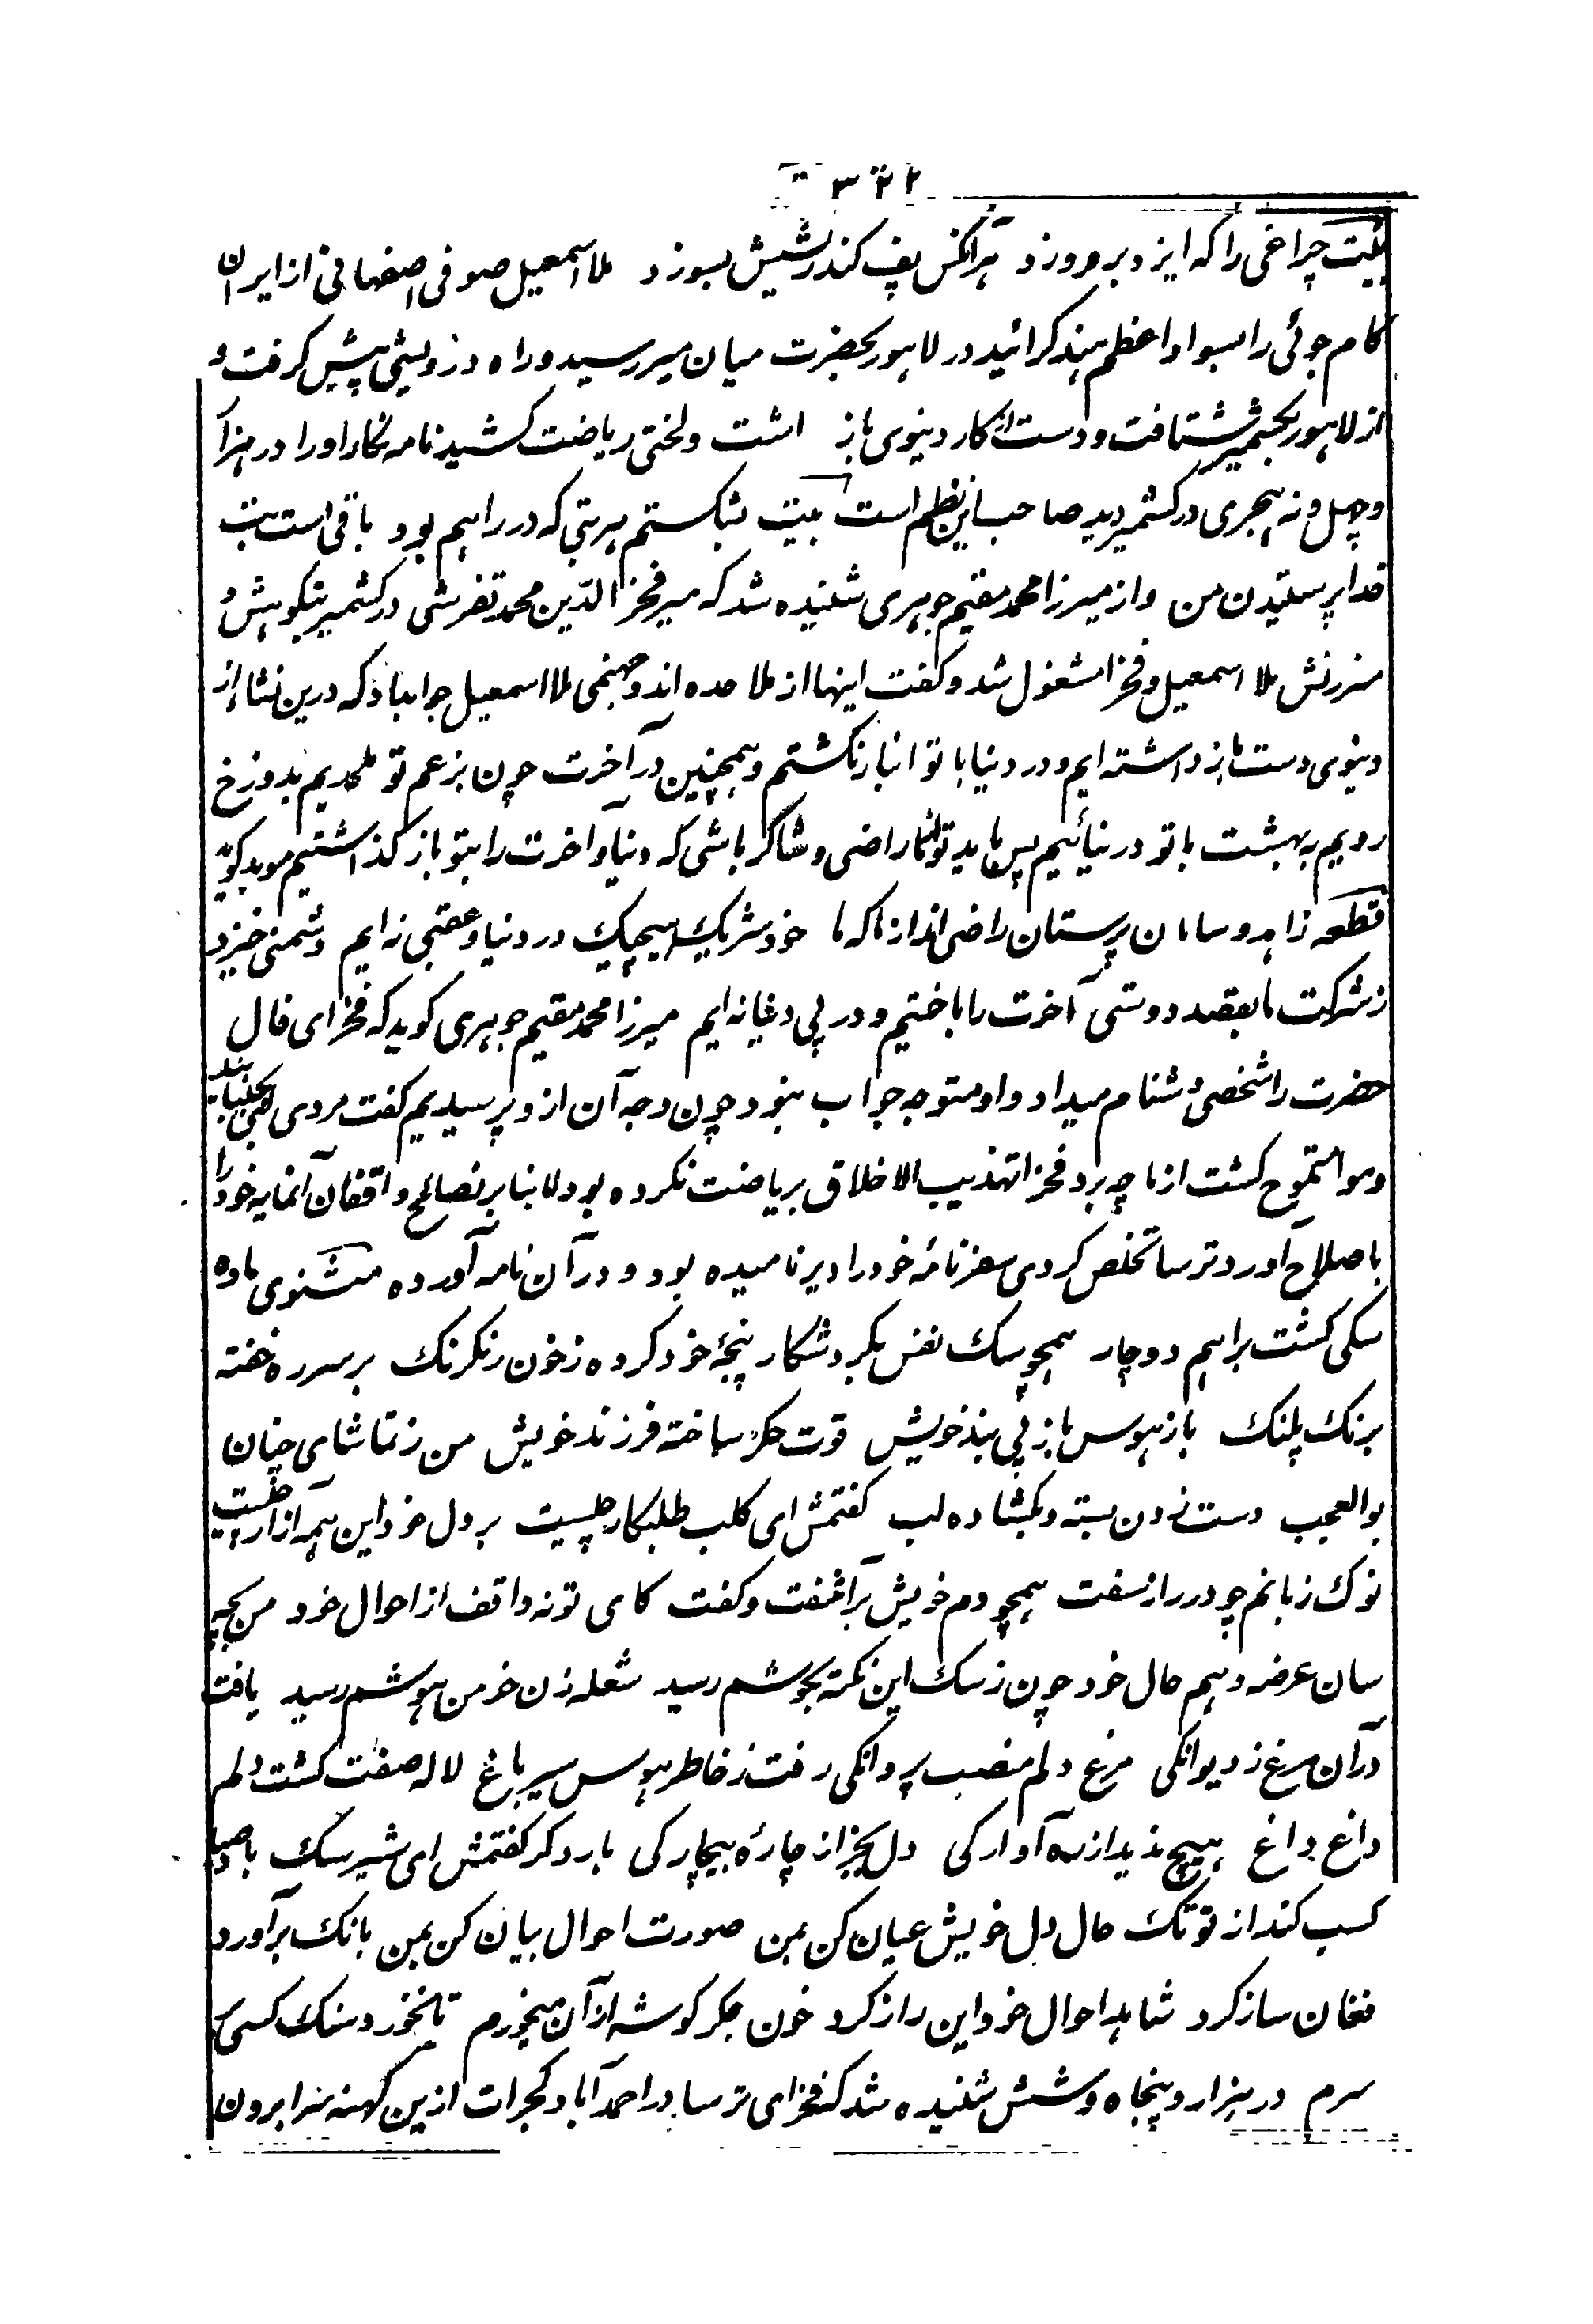 بیت چراغی را که ایزد بر فروزد هر آنکس پف کند ریشش بسوزد ملا اسمعیل صوفی اصفهانی از ایران
کام جوئی را بسواد اعظم هند کرائید در لاهور بحضرت میان میر رسید و راه درویشی پیش کرفت و
از لاهور بکشمیر شتافت و دست از کار دنیوی باز اشت و لختی ریاضت کشید نامه نکار او را در هزار
و چهل و نه هجری در کشمیر دید صاحب این نظم است بیت بشکستم هر بتی که در راهم بود باقی است بت
خدا پرستیدن من و از میرزا محمد مقیم جوهری شنیده شد که میر فخر الدین محمد تفرشی در کشمیر بنکوهش و
سرزنش ملا اسمعیل و فخرا مشغول شد و کفت اینها از ملاحده اند و جهنمی ملا اسمعیل جواب داد که درین نشاء از
دنیوی دست باز داشته ایم و در دنیا با تو انباز نکشتم و همچنین در آخرت چون بزعم تو ملحدیم بدوزخ
رویم به بهشت با تو در نیائیم پس باید تو از ما راضی و شاکر باشی که دنیا و آخرت را بتو باز کذاشتیم موبد کوید
قطعه زاهد و سامان پرستان راضی اند از ما که ما خود شریک هیچیک در دنیا و عقبی نه ایم دشمنی خیزد
ز شرکت ما بقصد دوستی آخرت را باختیم و در پی دنیا نه ایم میرزا محمد مقیم جوهری کوید که فخرای فال
حضرت را شخصی دشنام میداد و او متوجه جواب نبود چون وجه آن ازو پرسیدیم کفت مردی لبی بجنباند
و هوا متموج کشت از ما چه برد فخرا تهذیب الاخلاق بریاضت نکرده بود لا بنابر نصائح واقفان آنمایه خود را
باصلاح آورد و ترسا تخلص کردی سفرنامه خود را دیر نامیده بود و در آن نامه آورده مثنوی ماده
سکی کشت براهم دوچار همچو سک نفس بکرد شکار پنجه خود کرده ز خون رنکرنک بر سر ره خفته
برنک پلنک باز هوس باز پی بند خویش قوت جکر ساخته فرزند خویش من ز تماشای چنان
بوالعجب دست زدن بسته و بکشاده لب کفتمش ای کلب طلبکار چیست بر دل خود این همه آزار چیست
نوک زبانم چو در راز سفت همچو دم خویش بر آشفت و کفت کای تو نه واقف از احوال خود من بچه
سان عرضه دهم حال خود چون ز سک این نکته بکوشم رسید شعله زن خرمن هوشم رسید یافت
در آن مرغ ز دیوانکی مرغ دلم منصب پروانکی رفت ز خاطر هوس سیر باغ لاله صفت کشت دلم
داغ داغ هیچ ندید از ره آوارکی دل بجز از چاره بیچارکی بار دکر کفتمش ای شیر سک باد صبا
کسب کند از تو تک حال دل خویش عیان کن بمن صورت احوال بیان کن بمن بانک بر آورد
فغان ساز کرد شاهد احوال خود این راز کرد خون جکر کوشه از آن میخورم تا نخورد سنک کسی بر
سرم در هزار و پنجاه و شش شنیده شد که فخرای ترسا در احمدآباد کجرات ازین کهنه سرا برون